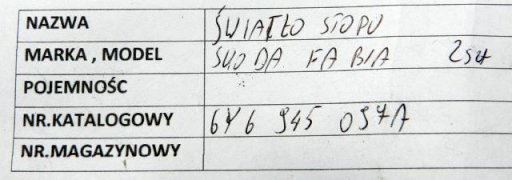 NAZWA ŚWIATŁO STOPU
MARKA , MODEL SKODA FABIA 2szt
POJEMNOŚC
NR.KATALOGOWY 6Y6 945 097A
NR.MAGAZYNOWY